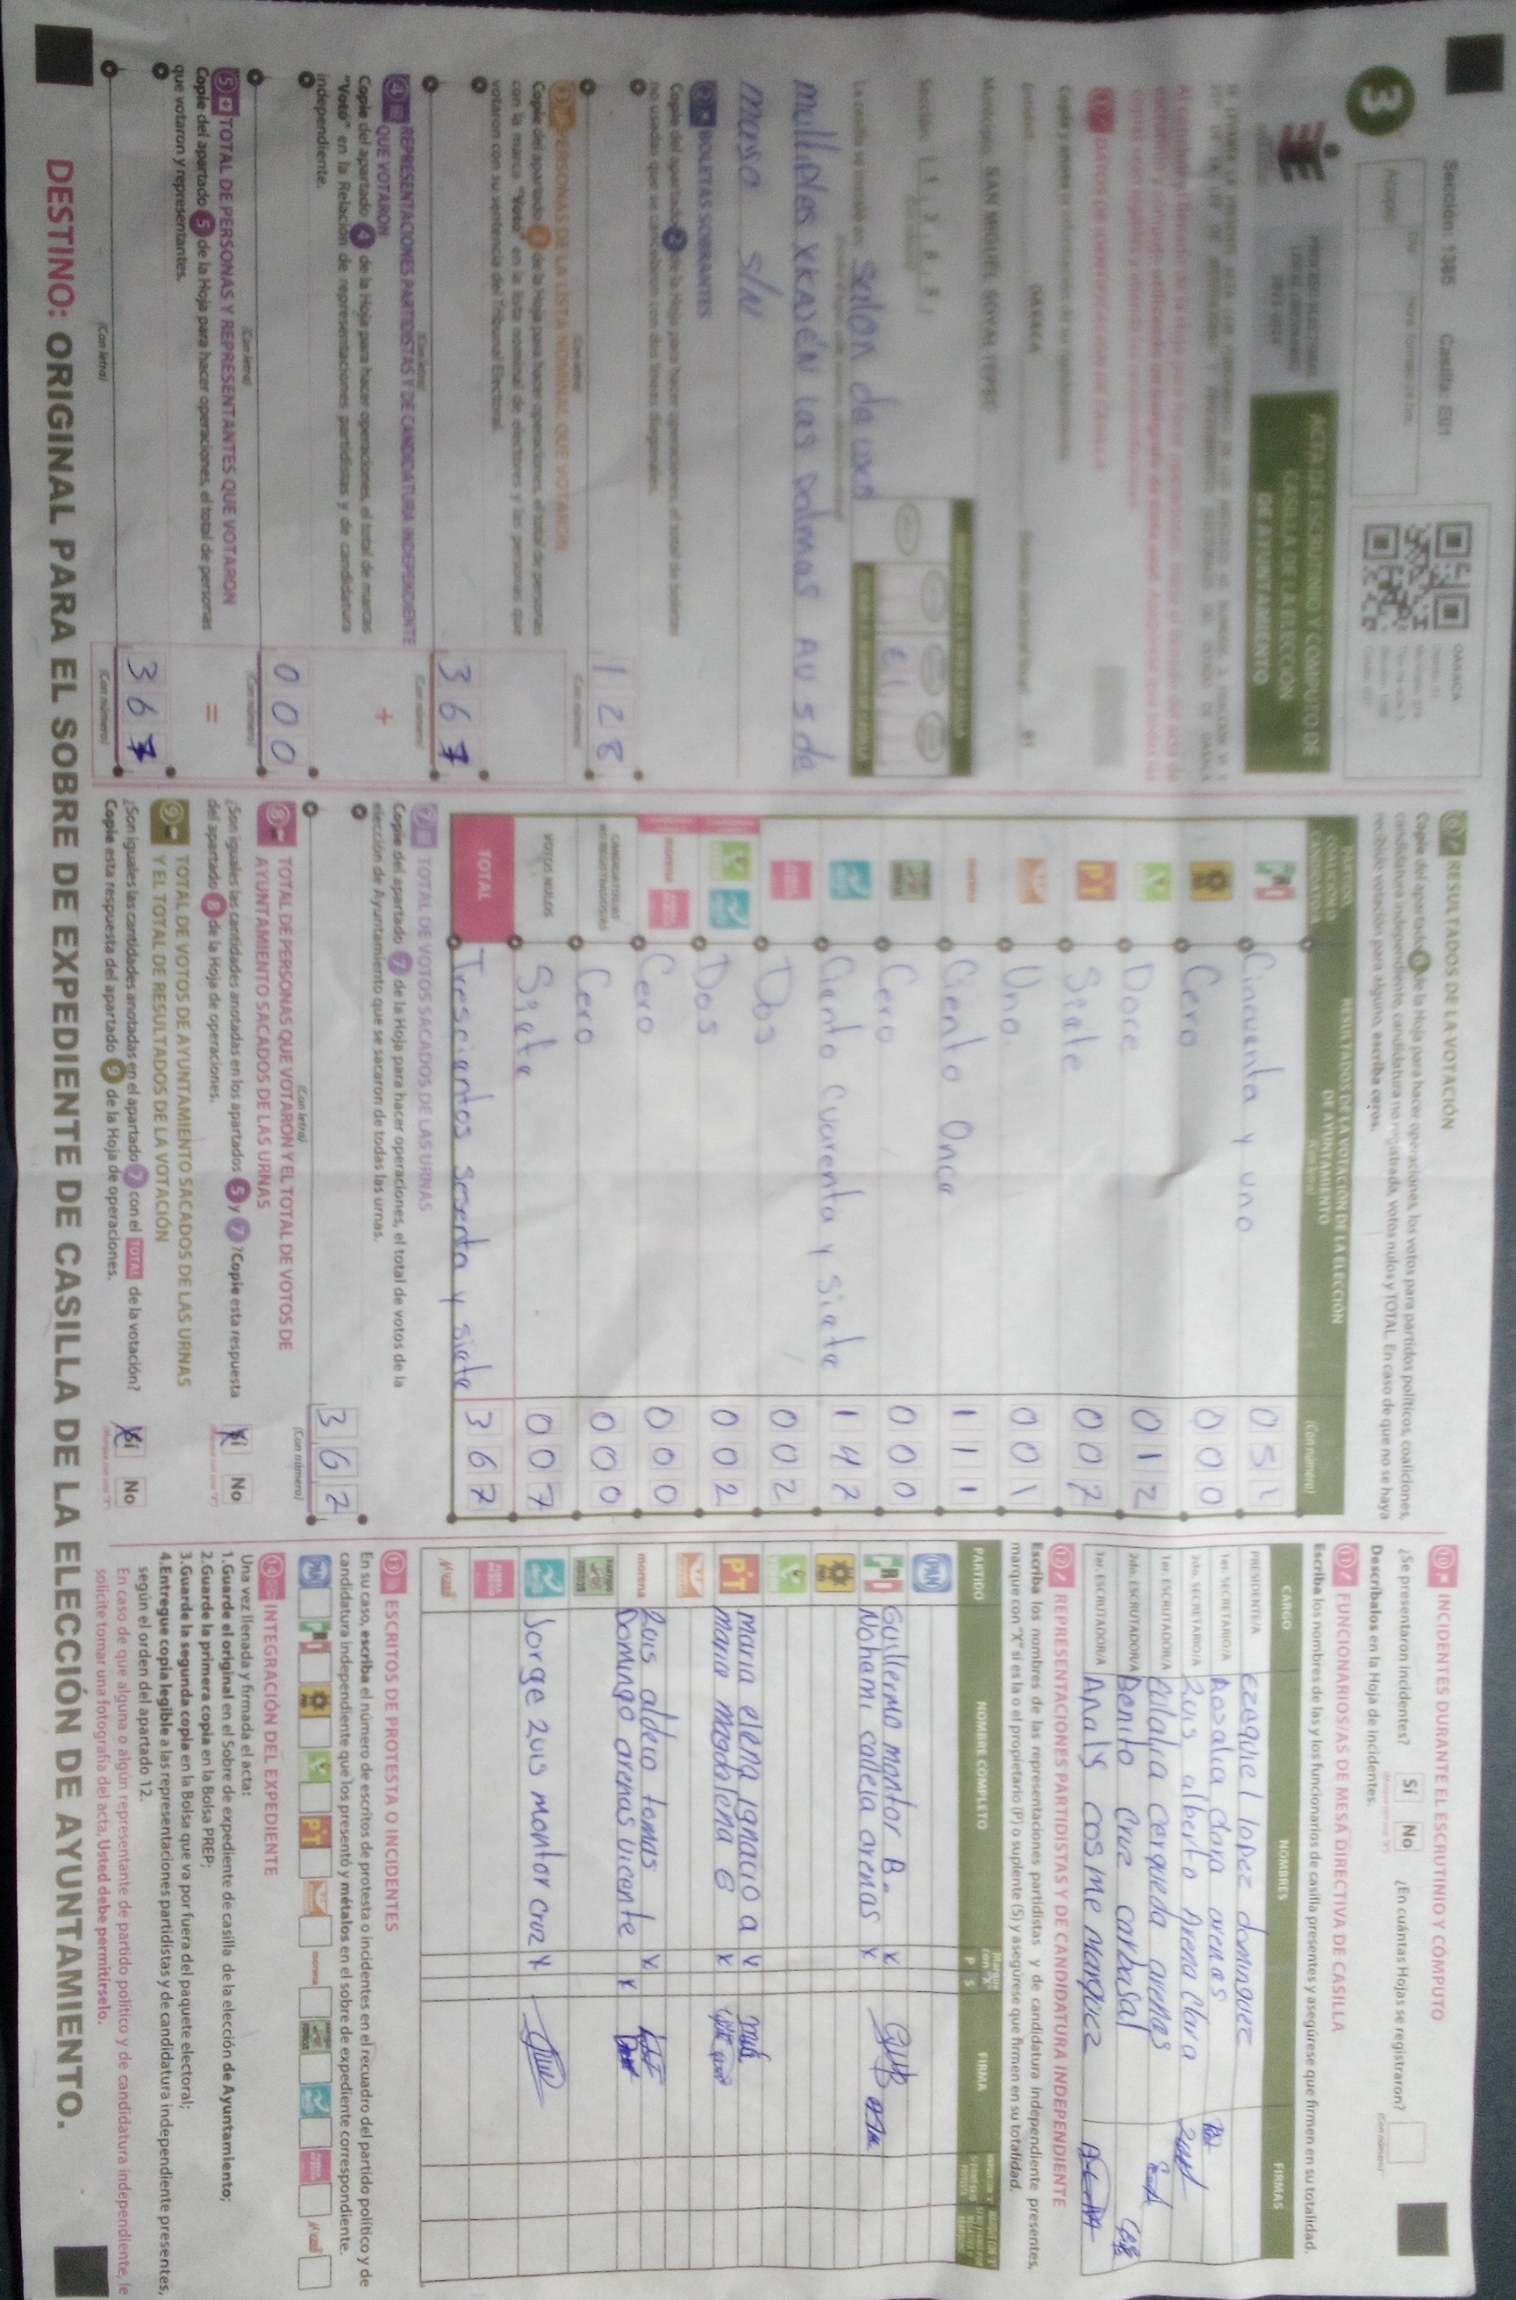 Sección: 1385 Casilla: E01
OAXACA
3
ACTA DE ESCRUTINIO Y CÓMPUTO DE
CASILLA DE LA ELECCIÓN
DE AYUNTAMIENTO
DATOS DE IDENTIFICACIÓN DE CASILLA
OAXACA
Municipio: SAN MIGUEL SOYALTEPEC
La casilla se instaló en: Salón de usos
multiples XKASÉN las palmas AV 5 de
mayo S/N
2 BOLETAS SOBRANTES
Copie del apartado 2 de la Hoja para hacer operaciones, el total de boletas
no usadas que se cancelaron con dos líneas diagonales.
128
3 PERSONAS DE LA LISTA NOMINAL QUE VOTARON
Copie del apartado 3 de la Hoja para hacer operaciones, el total de personas
con la marca "Votó" en la lista nominal de electores y las personas que
votaron con su sentencia del Tribunal Electoral.
(Con letra)
367
(Con número)
+
4 REPRESENTACIONES PARTIDISTAS Y DE CANDIDATURA INDEPENDIENTE
QUE VOTARON
Copie del apartado 4 de la Hoja para hacer operaciones, el total de marcas
"Votó" en la Relación de representaciones partidistas y de candidatura
independiente.
(Con letra)
000
(Con número)
=
5 TOTAL DE PERSONAS Y REPRESENTANTES QUE VOTARON
Copie del apartado 5 de la Hoja para hacer operaciones, el total de personas
que votaron y representantes.
(Con letra)
367
(Con número)
6 RESULTADOS DE LA VOTACIÓN
Copie del apartado 6 de la Hoja para hacer operaciones, los votos para partidos políticos, coaliciones,
candidatura independiente, candidatura no registrada, votos nulos y TOTAL. En caso de que no se haya
recibido votación para alguno, escriba ceros.
PARTIDO,
COALICIÓN O
CANDIDATO/A
RESULTADOS DE LA VOTACIÓN DE LA ELECCIÓN
DE AYUNTAMIENTO
(Con letra)
(Con número)
PRI Cincuenta y uno 051
Cero 000
Doce 012
PT Siete 007
Uno. 001
morena Ciento Once 111
Cero 000
Ciento Cuarenta y siete 147
Dos 002
Dos 002
morena Cero 000
Cero 000
VOTOS NULOS Siete 007
TOTAL Trescientos sesenta y siete 367
7 TOTAL DE VOTOS SACADOS DE LAS URNAS
Copie del apartado 7 de la Hoja para hacer operaciones, el total de votos de la
elección de Ayuntamiento que se sacaron de todas las urnas.
(Con letra)
367
(Con número)
8 TOTAL DE PERSONAS QUE VOTARON Y EL TOTAL DE VOTOS DE
AYUNTAMIENTO SACADOS DE LAS URNAS
¿Son iguales las cantidades anotadas en los apartados 5 y 7? Copie esta respuesta
del apartado 8 de la Hoja de operaciones.
Sí No
9 TOTAL DE VOTOS DE AYUNTAMIENTO SACADOS DE LAS URNAS
Y EL TOTAL DE RESULTADOS DE LA VOTACIÓN
¿Son iguales las cantidades anotadas en el apartado 7 con el TOTAL de la votación?
Copie esta respuesta del apartado 9 de la Hoja de operaciones.
Sí No
10 INCIDENTES DURANTE EL ESCRUTINIO Y CÓMPUTO
¿Se presentaron incidentes? Sí No ¿En cuántas Hojas se registraron?
Descríbalos en la Hoja de incidentes.
11 FUNCIONARIOS/AS DE MESA DIRECTIVA DE CASILLA
Escriba los nombres de las y los funcionarios de casilla presentes y asegúrese que firmen en su totalidad.
CARGO NOMBRES FIRMAS
PRESIDENTE/A ezequiel lopez dominguez
1er. SECRETARIO/A Rosalia clara arenas
2do. SECRETARIO/A Luis alberto Arena Clara
1er. ESCRUTADOR/A eulalia cerqueda arenas
2do. ESCRUTADOR/A Benito cruz carbasal
3er. ESCRUTADOR/A Analy cosme marquez
12 REPRESENTACIONES PARTIDISTAS Y DE CANDIDATURA INDEPENDIENTE
Escriba los nombres de las representaciones partidistas y de candidatura independiente presentes,
marque con "X" si es la o el propietario (P) o suplente (S) y asegúrese que firmen en su totalidad.
PARTIDO NOMBRE COMPLETO P S FIRMA
PAN
PRI Guillermo montor B. x
Nohemi calleja arenas x
PT maria elena ignacio a x
maria magdalena G x
morena Luis aldeco tomas x
Domingo arenas vicente x
Jorge Luis montor cruz x
13 ESCRITOS DE PROTESTA O INCIDENTES
En su caso, escriba el número de escritos de protesta o incidentes en el recuadro del partido político y de
candidatura independiente que los presentó y métalos en el sobre de expediente correspondiente.
14 INTEGRACIÓN DEL EXPEDIENTE
Una vez llenada y firmada el acta:
1.Guarde el original en el Sobre de expediente de casilla de la elección de Ayuntamiento;
2.Guarde la primera copia en la Bolsa PREP;
3.Guarde la segunda copia en la Bolsa que va por fuera del paquete electoral;
4.Entregue copia legible a las representaciones partidistas y de candidatura independiente presentes,
según el orden del apartado 12.
En caso de que alguna o algún representante de partido político y de candidatura independiente, le
solicite tomar una fotografía del acta, Usted debe permitírselo.
DESTINO: ORIGINAL PARA EL SOBRE DE EXPEDIENTE DE CASILLA DE LA ELECCIÓN DE AYUNTAMIENTO.